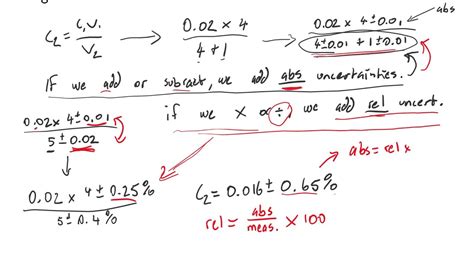 C₂ = C₁V₁ / V₂ → 0.02 × 4 / 4 + 1 → 0.02 × 4 ± 0.01 / 4 ± 0.01 + 1 ± 0.01
abs
If we add or subract, we add abs uncertainties.
if we × or ÷, we add rel uncert.
0.02 × 4 ± 0.01 / 5 ± 0.02
abs = rel ×
0.02 × 4 ± 0.25% / 5 ± 0.4%
C₂ = 0.016 ± 0.65%
rel = abs / meas. × 100